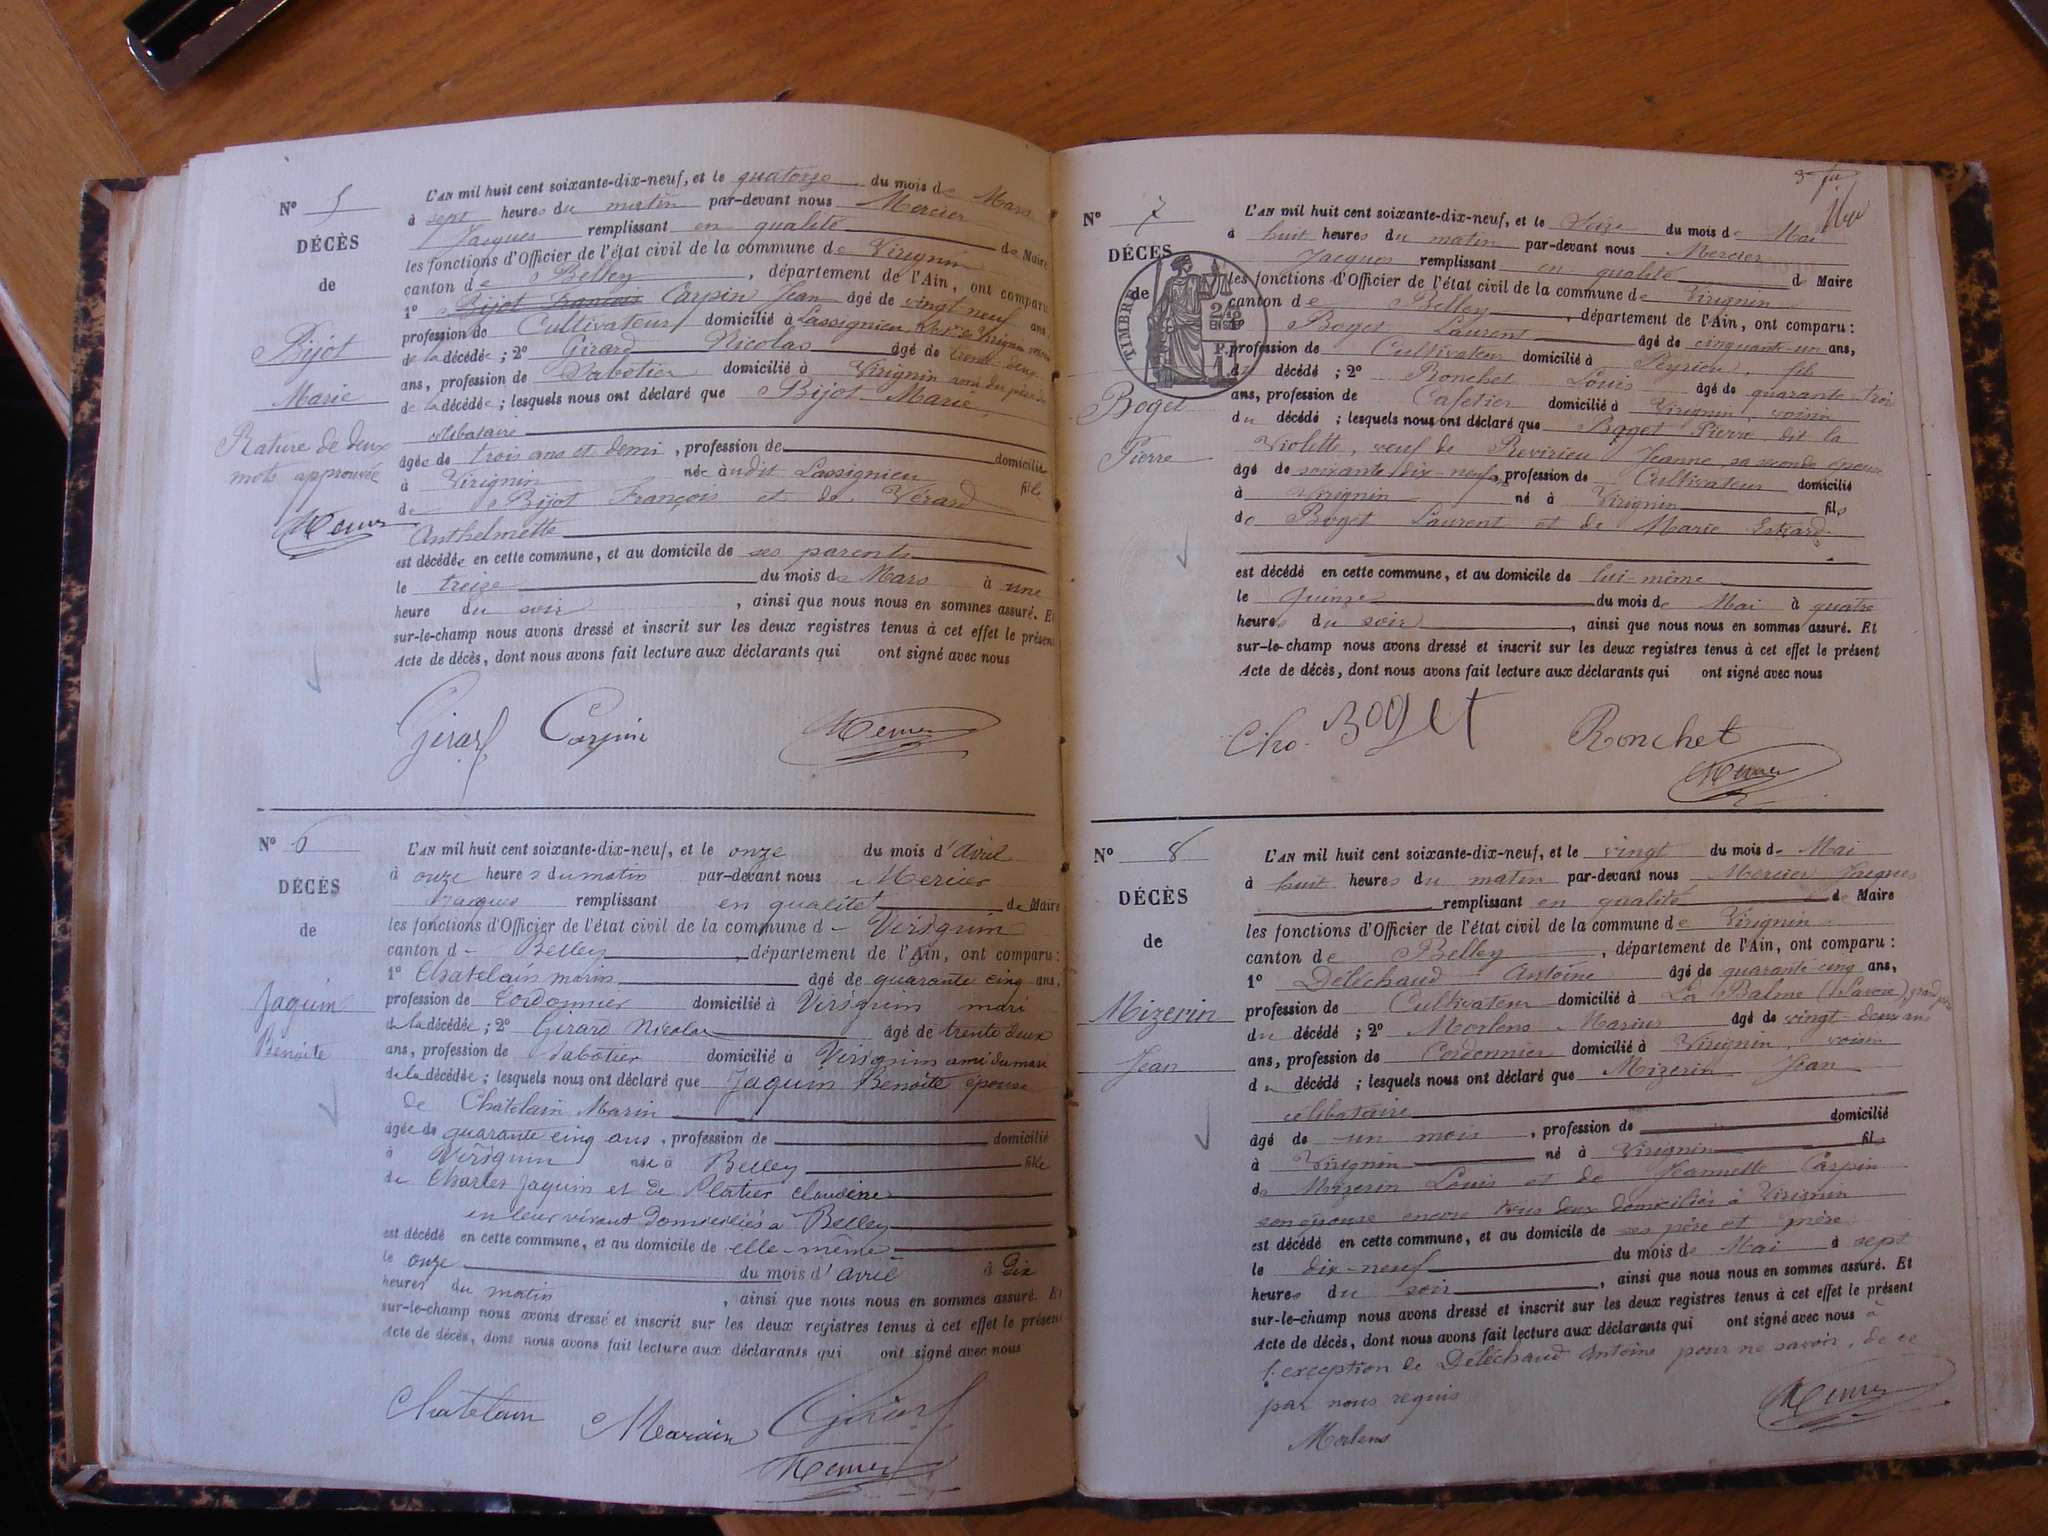 N° 5
DÉCÈS
de
Bijot
Marie
Rature de deux
mots approuvée
Mercier
L'AN mil huit cent soixante-dix-neuf, et le quatorze du mois de Mars
à sept heures du matin par-devant nous Mercier
Jacques remplissant en qualité de Maire
les fonctions d'Officier de l'état civil de la commune de Virignin
canton de Belley, département de l'Ain, ont comparu
1° Bijot François Carpin Jean âgé de vingt-neuf ans
profession de Cultivateur domicilié à Lassignieu Virignin
de la décédée ; 2° Girard Nicolas âgé de trente deux
ans, profession de Sabotier domicilié à Virignin ami du père
de la décédée ; lesquels nous ont déclaré que Bijot Marie,
célibataire
âgée de trois ans et demi, profession de domicilié
à Virignin née audit Lassignieu fille
de Bijot François et de Vérard
Anthelmette
est décédée en cette commune, et au domicile de ses parents
le treize du mois de Mars à une
heure du soir, ainsi que nous nous en sommes assuré. Et
sur-le-champ nous avons dressé et inscrit sur les deux registres tenus à cet effet le présent
Acte de décès, dont nous avons fait lecture aux déclarants qui ont signé avec nous
Girard Carpin Mercier
N° 6
DÉCÈS
de
Jaquin
Benoite
L'AN mil huit cent soixante-dix-neuf, et le onze du mois d'Avril
à onze heures du matin par-devant nous Mercier
Jacques remplissant en qualité de Maire
les fonctions d'Officier de l'état civil de la commune d Virignin
canton d Belley, département de l'Ain, ont comparu :
1° Chatelain marin âgé de quarante cinq ans,
profession de Cordonnier domicilié à Virignin mari
de la décédée ; 2° Girard Nicolas âgé de trente deux
ans, profession de Sabotier domicilié à Virignin ami du mari
de la décédée ; lesquels nous ont déclaré que Jaquin Benoite épouse
de Chatelain Marin
âgée de quarante cinq ans, profession de domicilié
à Virignin née à Belley fille
de Charles Jaquin et de Platier claudine
en leur vivant Domiciliés à Belley
est décédé en cette commune, et au domicile de elle-même
le onze du mois d'avril à Dix
heures du matin, ainsi que nous nous en sommes assuré. Et
sur-le-champ nous avons dressé et inscrit sur les deux registres tenus à cet effet le présent
Acte de décès, dont nous avons fait lecture aux déclarants qui ont signé avec nous
Chatelain Marain Girard
Mercier
3
N° 7
DÉCÈS
de
TIMBRE
Boget
Pierre
L'AN mil huit cent soixante-dix-neuf, et le Seize du mois de Mai
à huit heures du matin par-devant nous Mercier
Jacques remplissant en qualité d Maire
les fonctions d'Officier de l'état civil de la commune de Virignin
canton de Belley, département de l'Ain, ont comparu :
Boget Laurent âgé de cinquante-un ans,
profession de Cultivateur domicilié à Peyrieu, fils
du décédé ; 2° Ronchet Louis âgé de quarante-trois
ans, profession de Cafetier domicilié à Virignin, voisin
du décédé ; lesquels nous ont déclaré que Boget Pierre dit la
Violette, veuf de Revirieu Jeanne, sa seconde épouse
âgé de soixante dix-neuf, profession de Cultivateur domicilié
à Virignin né à Virignin fils
de Boget Laurent et de Marie
est décédé en cette commune, et au domicile de lui-même
le Quinze du mois de Mai à quatre
heures du soir, ainsi que nous nous en sommes assuré. Et
sur-le-champ nous avons dressé et inscrit sur les deux registres tenus à cet effet le présent
Acte de décès, dont nous avons fait lecture aux déclarants qui ont signé avec nous
Boget Ronchet
Mercier
N° 8
DÉCÈS
de
Mizerin
Jean
L'AN mil huit cent soixante-dix-neuf, et le vingt du mois de Mai
à huit heures du matin par-devant nous Mercier Jacques
remplissant en qualité de Maire
les fonctions d'Officier de l'état civil de la commune de Virignin
canton de Belley, département de l'Ain, ont comparu :
1° Déléchaud Antoine âgé de quarante cinq ans,
profession de Cultivateur domicilié à La Balme (Savoie), grand père
du décédé ; 2° Morlens Marius âgé de vingt-deux ans
ans, profession de Cordonnier domicilié à Virignin, voisin
du décédé ; lesquels nous ont déclaré que Mizerin Jean
célibataire
âgé de un mois, profession de domicilié
à Virignin né à Virignin fil
de Mizerin Louis et de Jeannette Carpin
son épouse encore tous deux domiciliés à Virignin
est décédé en cette commune, et au domicile de ses père et mère
le dix-neuf du mois de Mai à sept
heures du soir, ainsi que nous nous en sommes assuré. Et
sur-le-champ nous avons dressé et inscrit sur les deux registres tenus à cet effet le présent
Acte de décès, dont nous avons fait lecture aux déclarants qui ont signé avec nous à
l'exception de Déléchaud Antoine pour ne savoir, de ce
par nous requis
Morlens Mercier